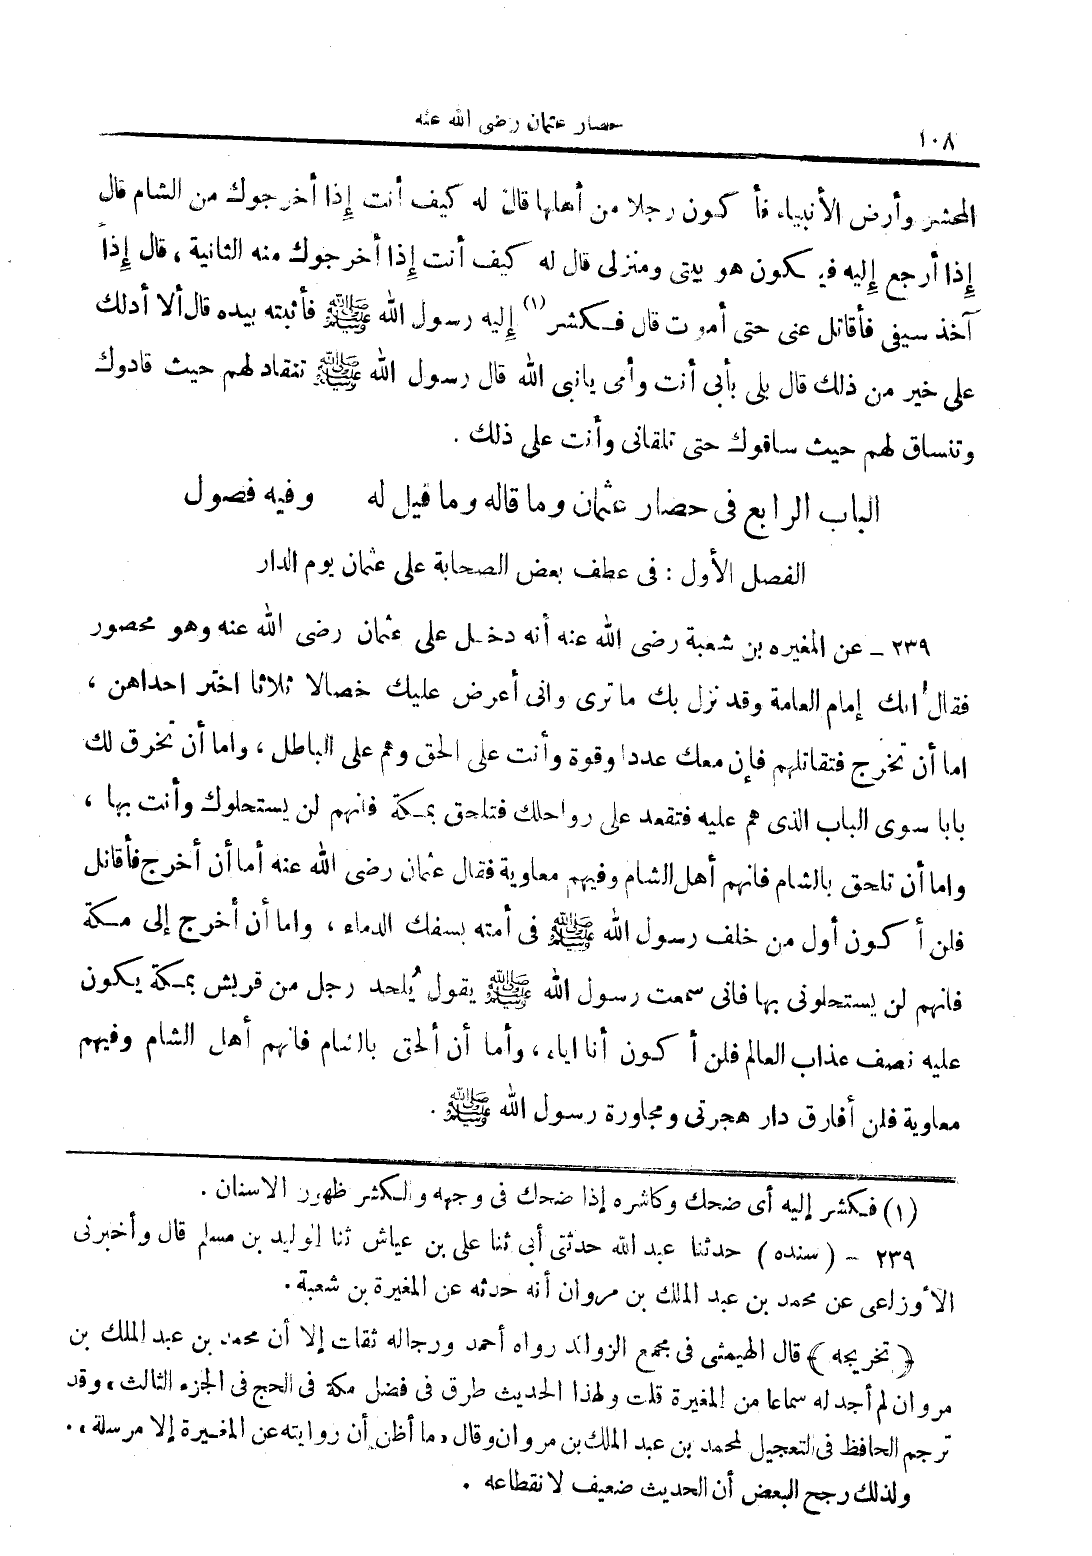 ١٠٨
حصار عثمان رضى الله عنه
المحشر وأرض الأنبياء فأكون رجلا من أهلها قال له كيف أنت إذا أخرجوك من الشام قال
إذا أرجع إليه فيكون هو بيتى ومنزلى قال له كيف أنت إذا أخرجوك منه الثانية ، قال إذاً
آخذ سيفى فأقاتل عنى حتى أموت قال فكشر (١) إليه رسول الله ﷺ فأثبته بيده قال ألا أدلك
على خير من ذلك قال بلى بأبى أنت وأمى يانبى الله قال رسول الله ﷺ تنقاد لهم حيث قادوك
وتنساق لهم حيث ساقوك حتى تلقانى وأنت على ذلك .
الباب الرابع فى حصار عثمان وما قاله وما قيل له وفيه فصول
الفصل الأول : فى عطف بعض الصحابة على عثمان يوم الدار
٢٣٩ – عن المغيره بن شعبة رضى الله عنه أنه دخل على عثمان رضى الله عنه وهو محصور
فقال انك إمام العامة وقد نزل بك ما ترى وانى أعرض عليك خصالا ثلاثا اختر احداهن ،
اما أن تخرج فتقاتلهم فإن معك عددا وقوة وأنت على الحق وهم على الباطل ، واما أن تخرق لك
بابا سوى الباب الذى هم عليه فتقعد على رواحلك فتلحق بمكة فانهم لن يستحلوك وأنت بها ،
واما أن تلحق بالشام فانهم أهل الشام وفيهم معاوية فقال عثمان رضى الله عنه أما أن أخرج فأقاتل
فلن أكون أول من خلف رسول الله ﷺ فى أمته بسفك الدماء ، واما أن أخرج إلى مكة
فانهم لن يستحلونى بها فانى سمعت رسول الله ﷺ يقول يُلحد رجل من قريش بمكة يكون
عليه نصف عذاب العالم فلن أكون أنا اياه ، وأما أن ألحق بالشام فانهم أهل الشام وفيهم
معاوية فلن أفارق دار هجرتى ومجاورة رسول الله ﷺ .
(١) فكشر إليه أى ضحك وكاشره إذا ضحك فى وجهه والكشر ظهور الاسنان .
٢٣٩ – (سنده) حدثنا عبد الله حدثنى أبى ثنا على بن عياش ثنا الوليد بن مسلم قال وأخبرنى
الأوزاعى عن محمد بن عبد الملك بن مروان أنه حدثه عن المغيرة بن شعبة .
﴿ تخريجه ﴾ قال الهيثمى فى مجمع الزوائد رواه أحمد ورجاله ثقات إلا أن محمد بن عبد الملك بن
مروان لم أجد له سماعا من المغيرة قلت ولهذا الحديث طرق فى فضل مكة فى الحج فى الجزء الثالث ، وقد
ترجم الحافظ فى التعجيل لمحمد بن عبد الملك بن مروان وقال « ما أظن أن روايته عن المغيرة إلا مرسلة » .
ولذلك رجح البعض أن الحديث ضعيف لانقطاعه .